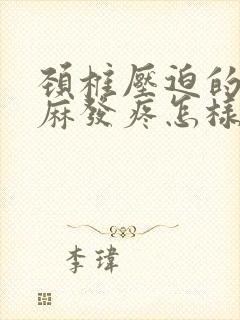 頸椎壓迫的
麻發疼怎樣
李瑋